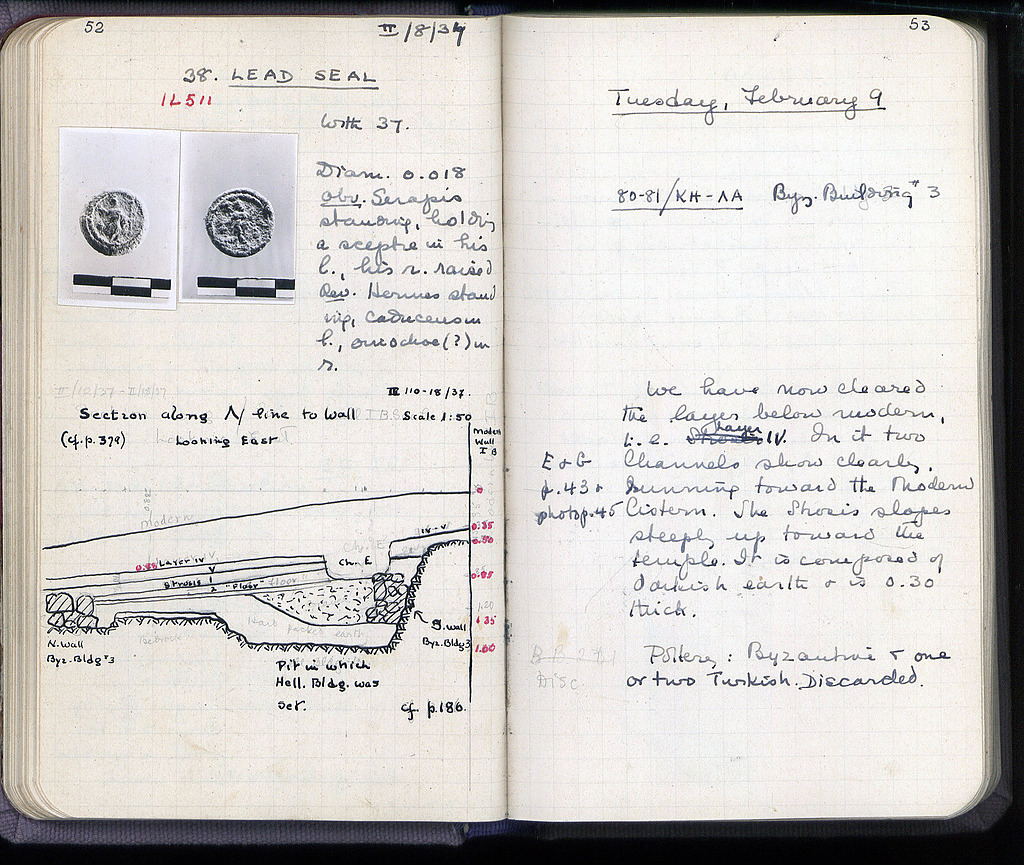 52
II/8/37
38. LEAD SEAL
IL511
With 37.
Diam. 0.018
Obv. Serapis
standing, holding
a sceptre in his
l., his r. raised
Rev. Hermes stand
ing, caduceus in
l., oinochoe(?) in
r.
II/10/37 - II/18/37
II 10-18/37.
Section along N/ line to Wall
Scale 1:50
(cf. p. 379)
Looking East
Modern
Wall
I B
0
Modern
IV-V
0.35
0.50
Ch. E
0.85
Layer IV
V
V
0.85
Strosis 1
2 "Floor"
floor
1.20
1.35
Hard packed earth
Bedrock
S. wall
Byz. Bldg 3
1.60
N. wall
Byz. Bldg #3
Pit in which
Hell. Bldg. was
set.
cf. p. 186.
53
Tuesday, February 9
80-81/ΚΗ-ΛΑ Byz. Building #3
We have now cleared
the layer below modern,
i. e. Layer IV. In it two
E & G
Channels show clearly,
p. 43 &
running toward the Modern
photo p. 45
Cistern. The Strosis slopes
steeply up toward the
temple. It is composed of
darkish earth & is 0.30
thick.
Disc.
Pottery: Byzantine & one
or two Turkish. Discarded.